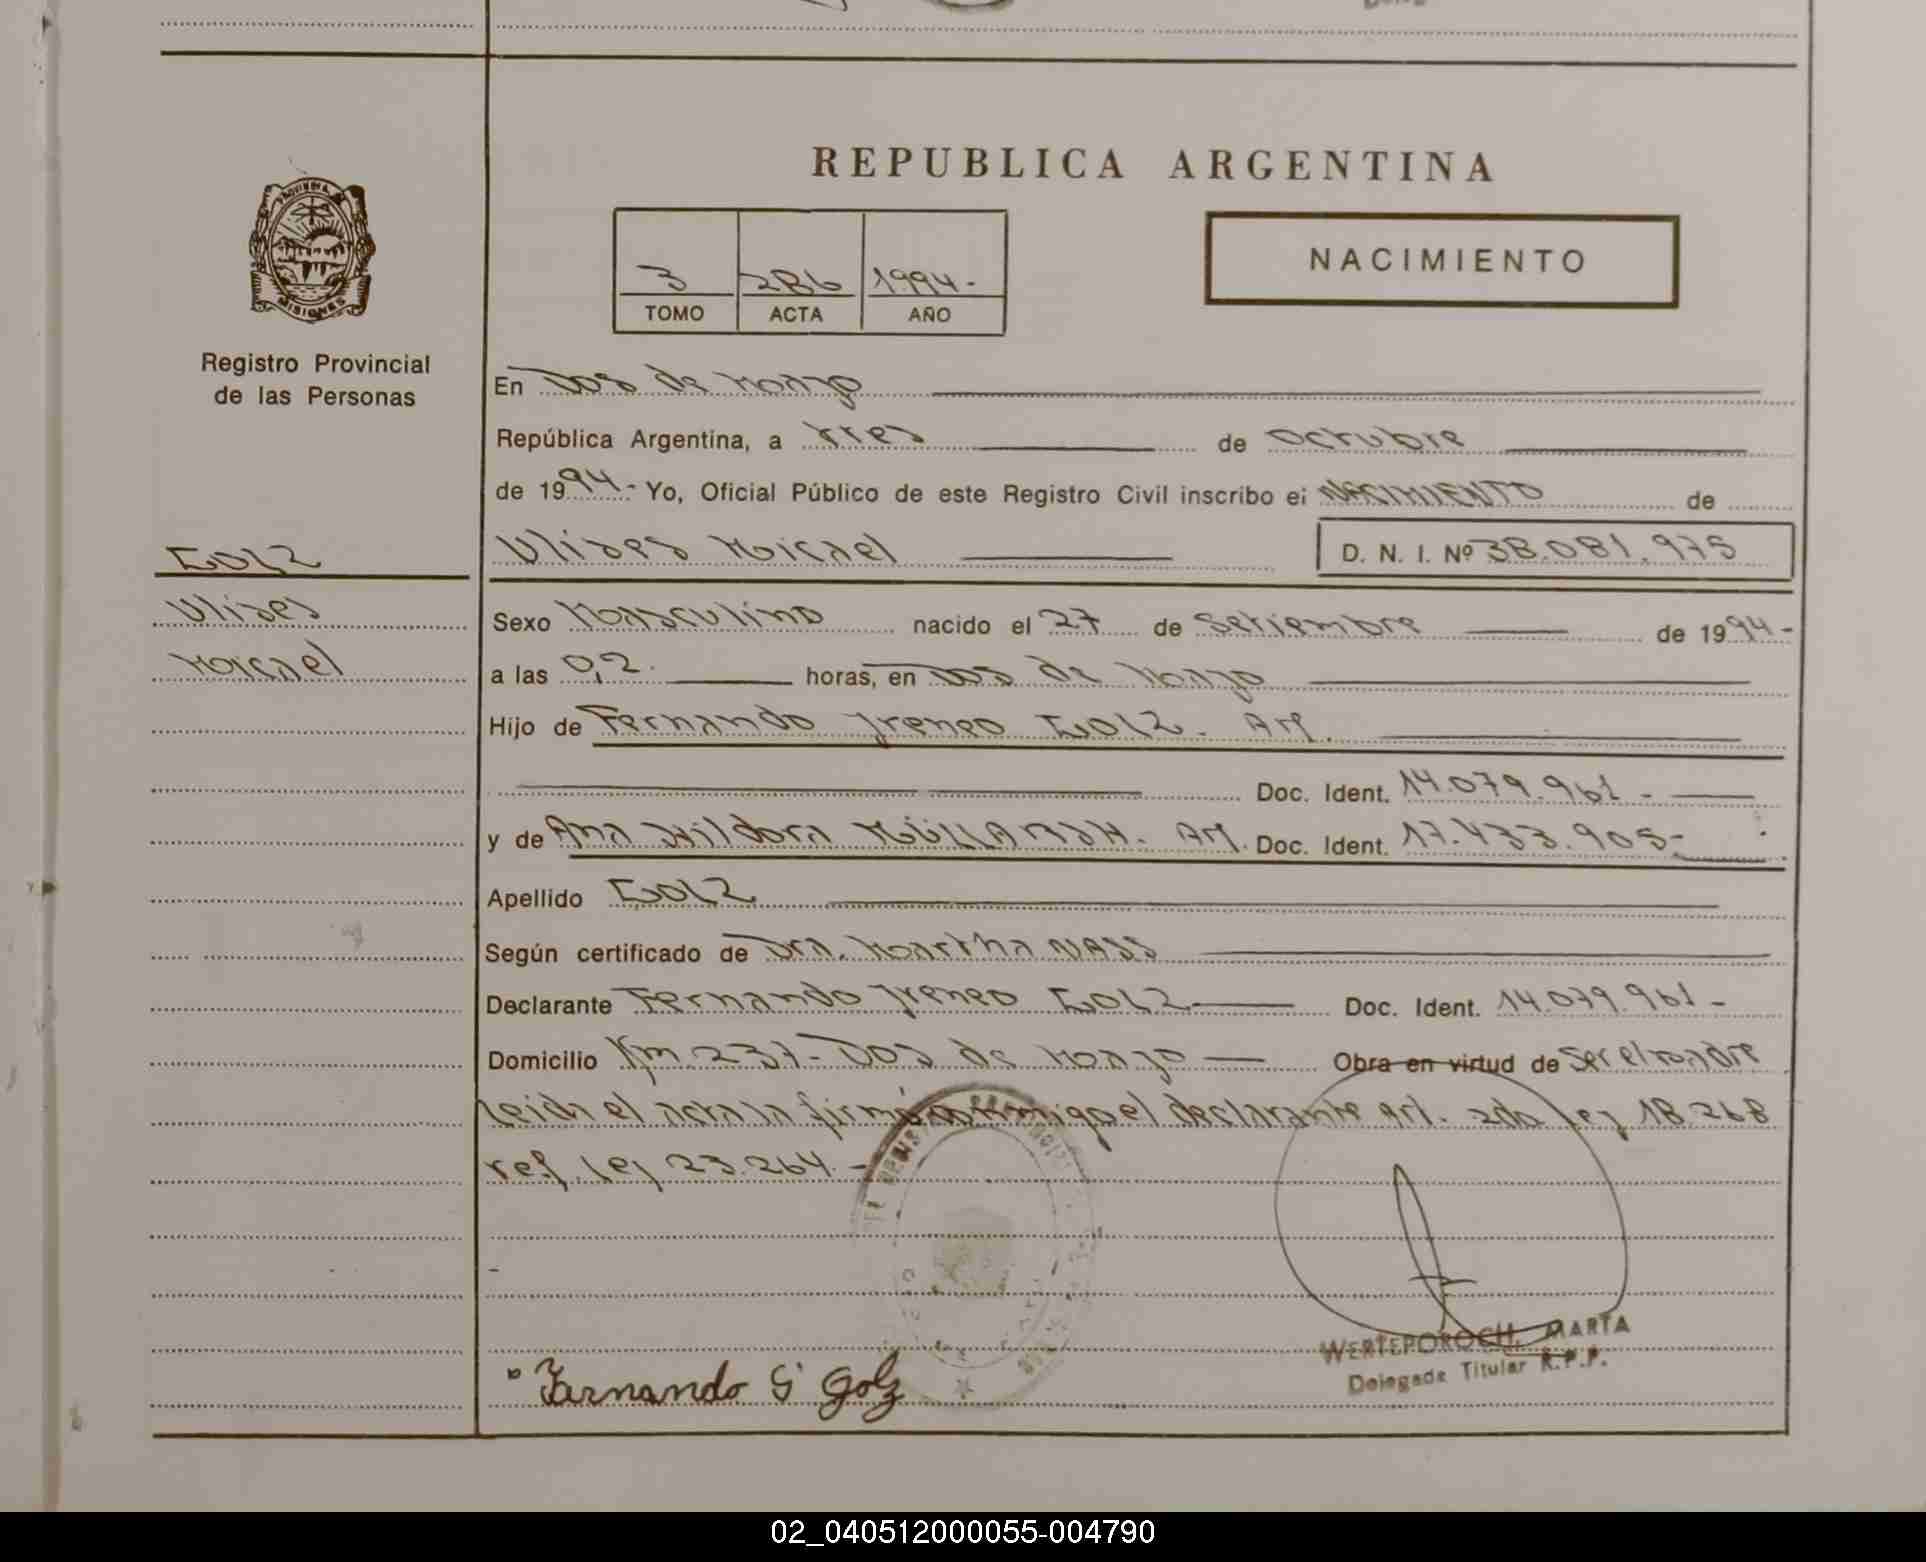 REPUBLICA ARGENTINA
PROVINCIA
MISIONES
Registro Provincial
de las Personas
3 286 1994-
TOMO ACTA AÑO
NACIMIENTO
En Dos de Mayo
República Argentina, a tres de octubre
de 1994.- Yo, Oficial Público de este Registro Civil inscribo el NACIMIENTO de
GOLZ
Ulises Micael D. N. I. Nº 38.081.975
Ulises
Micael
Sexo Masculino nacido el 27 de Setiembre de 1994-
a las 0,2. horas, en Dos de Mayo
Hijo de Fernando Ireneo GOLZ. Arg.
Doc. Ident. 14.079.961-
y de Ana Hildora Arg. Doc. Ident. 17.433.905-
Apellido GOLZ
Según certificado de Dra. Martha NASS
Declarante Fernando Ireneo GOLZ Doc. Ident. 14.079.961-
Domicilio Km. 237- Dos de Mayo Obra en virtud de Ser el padre
Leida el acta la firmó conmigo el declarante art. 2do ley 18.268
ref. ley 23.264.-
Fernando G Golz
WERTEPOROCH, MARTA
Delegada Titular R.P.P.
02_040512000055-004790